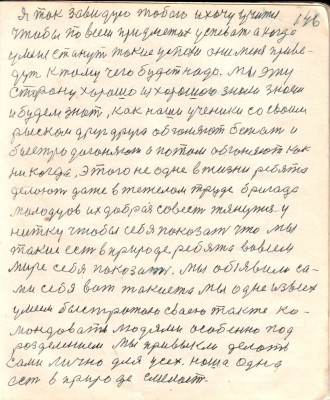 146
Я так завидую тобою и хочу учити
чтобы по всем придметах успеват а когда
умеы станут такие успехи они меня приве-
дут к тому чего будет надо. Мы эту
сторону хорошо и хорошого знали знаем
и будем знат, как наши ученики со своим
риском друг друга обгоняют бегают и
быстро догоняют а потом обгоняют как
ни когда, этого не одне в жизни ребята
делают даже в тежелом труде бригада
молодцов их добрая совест тянутся у
нитку чтобы себя показат что мы
такие ест в природе ребята во всем
мире себя показат. Мы обявили са-
ми себя вот такие то мы одне из всех
умеем быстротою своею также ко-
мондоват людями особенно под
розделением мы привыкли делат
сами лично для усех. наша одна
ест в природе смелост.